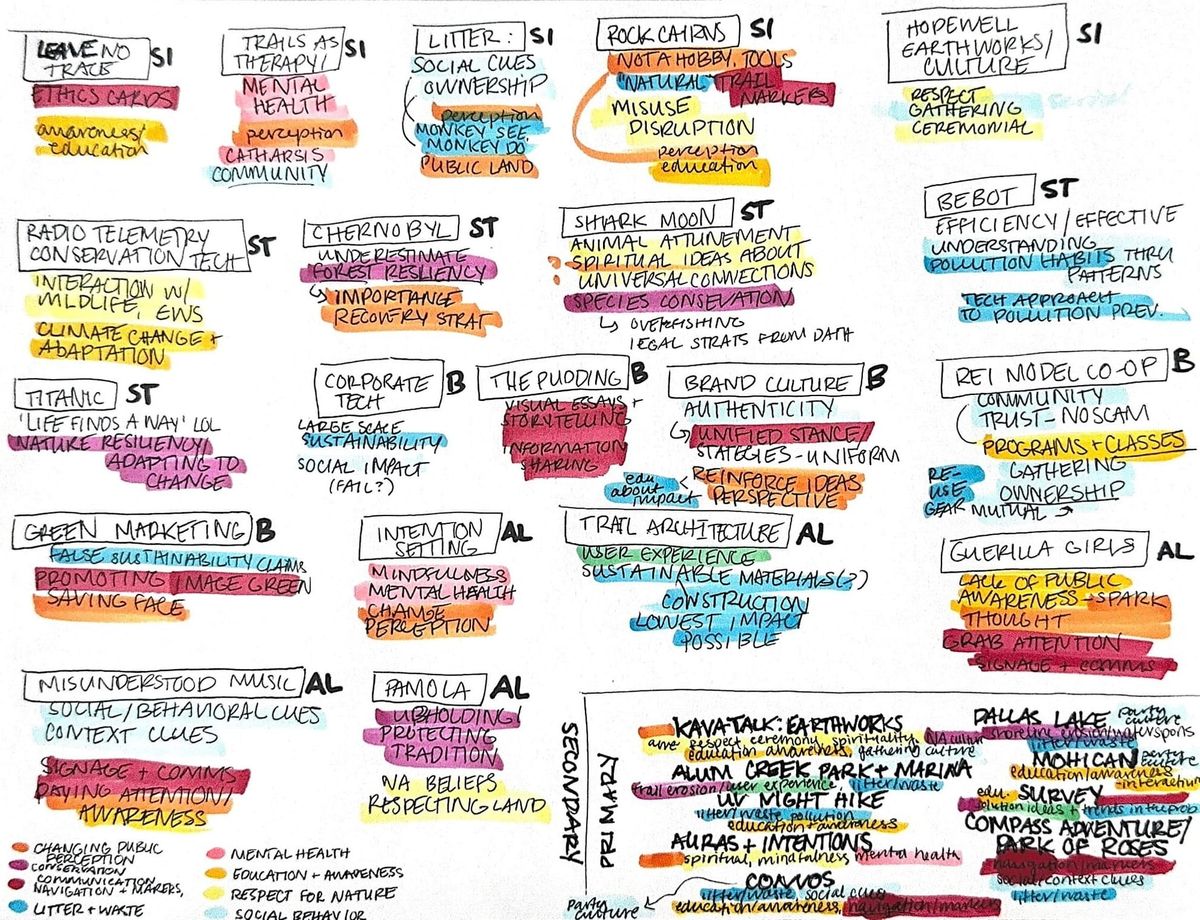 LEAVE NO
TRACE
SI
ETHICS CARDS
awareness/
education
TRAILS AS
THERAPY/
SI
MENTAL
HEALTH
perception
CATHARSIS
COMMUNITY
LITTER:
SI
SOCIAL CUES
OWNERSHIP
perception
MONKEY SEE,
MONKEY DO
PUBLIC LAND
ROCK CAIRNS
SI
NOT A HOBBY, TOOLS
"NATURAL" TRAIL
MARKERS
MISUSE
DISRUPTION
perception
education
HOPEWELL
EARTHWORKS/
CULTURE
SI
RESPECT
GATHERING
CEREMONIAL
RADIO TELEMETRY
CONSERVATION TECH
ST
INTERACTION W/
WILDLIFE, EWS
CLIMATE CHANGE +
ADAPTATION
CHERNOBYL
ST
UNDERESTIMATE
FOREST RESILIENCY
IMPORTANCE
RECOVERY STRAT
SHARK MOON
ST
ANIMAL ATTUNEMENT
SPIRITUAL IDEAS ABOUT
UNIVERSAL CONNECTIONS
SPECIES CONSEVATION
OVERFISHING
LEGAL STRATS FROM DATA
BEBOT
ST
EFFICIENCY/EFFECTIVE
UNDERSTANDING
POLLUTION HABITS THRU
PATTERNS
TECH APPROACH
TO POLLUTION PREV.
TITANIC
ST
'LIFE FINDS A WAY' LOL
NATURE RESILIENCY/
ADAPTING TO
CHANGE
CORPORATE
TECH
B
LARGE SCALE
SUSTAINABILITY
SOCIAL IMPACT
(FAIL?)
THE PUDDING
B
VISUAL ESSAYS +
STORYTELLING
INFORMATION
SHARING
BRAND CULTURE
B
AUTHENTICITY
UNIFIED STANCE/
STATEGIES-UNIFORM
REINFORCE IDEAS
PERSPECTIVE
edu
about
impact
REI MODEL CO-OP
B
COMMUNITY
TRUST-NO SCAM
PROGRAMS + CLASSES
GATHERING
OWNERSHIP
MUTUAL
RE-
USE
GEAR
GREEN MARKETING
B
FALSE SUSTAINABILITY CLAIMS
PROMOTING IMAGE GREEN
SAVING FACE
INTENTION
SETTING
AL
MINDFULNESS
MENTAL HEALTH
CHANGE
PERCEPTION
TRAIL ARCHITECTURE
AL
USER EXPERIENCE
SUSTAINABLE MATERIALS(?)
CONSTRUCTION
LOWEST IMPACT
POSSIBLE
GUERILLA GIRLS
AL
LACK OF PUBLIC
AWARENESS → SPARK
THOUGHT
GRAB ATTENTION
SIGNAGE + COMMS
MISUNDERSTOOD MUSIC
AL
SOCIAL/BEHAVIORAL CUES
CONTEXT CLUES
SIGNAGE + COMMS
PAYING ATTENTION/
AWARENESS
PAMOLA
AL
UPHOLDING/
PROTECTING
TRADITION
NA BELIEFS
RESPECTING LAND
SECONDARY
PRIMARY
KAVA-TALK: EARTHWORKS
respect ceremonial, spirituality, NA culture
education awareness, gathering culture
ALUM CREEK PARK + MARINA
trail erosion/user experience, litter/waste
UV NIGHT HIKE
litter/waste pollution
education + awareness
AURAS + INTENTIONS
spiritual, mindfulness mental health
CONVOS
litter/waste, social cues
education/awareness, navigation/markers
party
culture
DALLAS LAKE
party
culture
shoreline erosion/watersports
litter/waste
MOHICAN
party
culture
education/awareness
interaction
SURVEY
edu.
solution ideas + trends in the prob
COMPASS ADVENTURE/
PARK OF ROSES
navigation/markers
social/context clues
litter/waste
CHANGING PUBLIC
PERCEPTION
CONSERVATION
COMMUNICATION
NAVIGATION + MAKERS,
LITTER + WASTE
MENTAL HEALTH
EDUCATION + AWARENESS
RESPECT FOR NATURE
SOCIAL BEHAVIOR